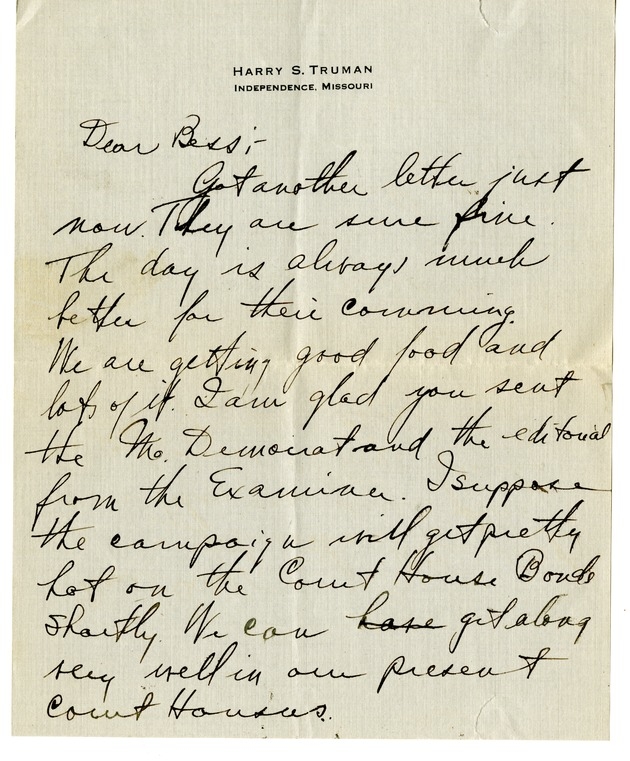 HARRY S. TRUMAN
INDEPENDENCE, MISSOURI
Dear Bess;-
Got another letter just
now. They are sure fine.
The day is always much
better for their comming.
We are getting good food and
lots of it. I am glad you sent
the Mo. Democrat and the editorial
from the Examiner. I suppose
the campaign will get pretty
hot on the Court House Bonds
shortly. We can have get along
very well in our present
Court Houses.